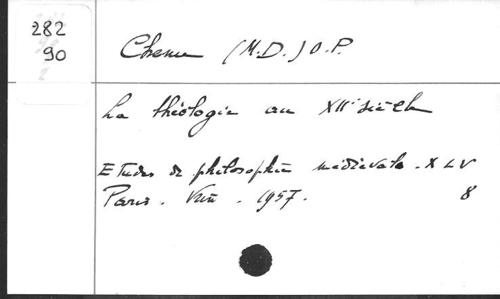 282
90
Chenu (M.D.) O.P.
La théologie au XIIe siècle
Etudes de philosophie médiévale. XLV
Paris. Vrin. 1957. 8